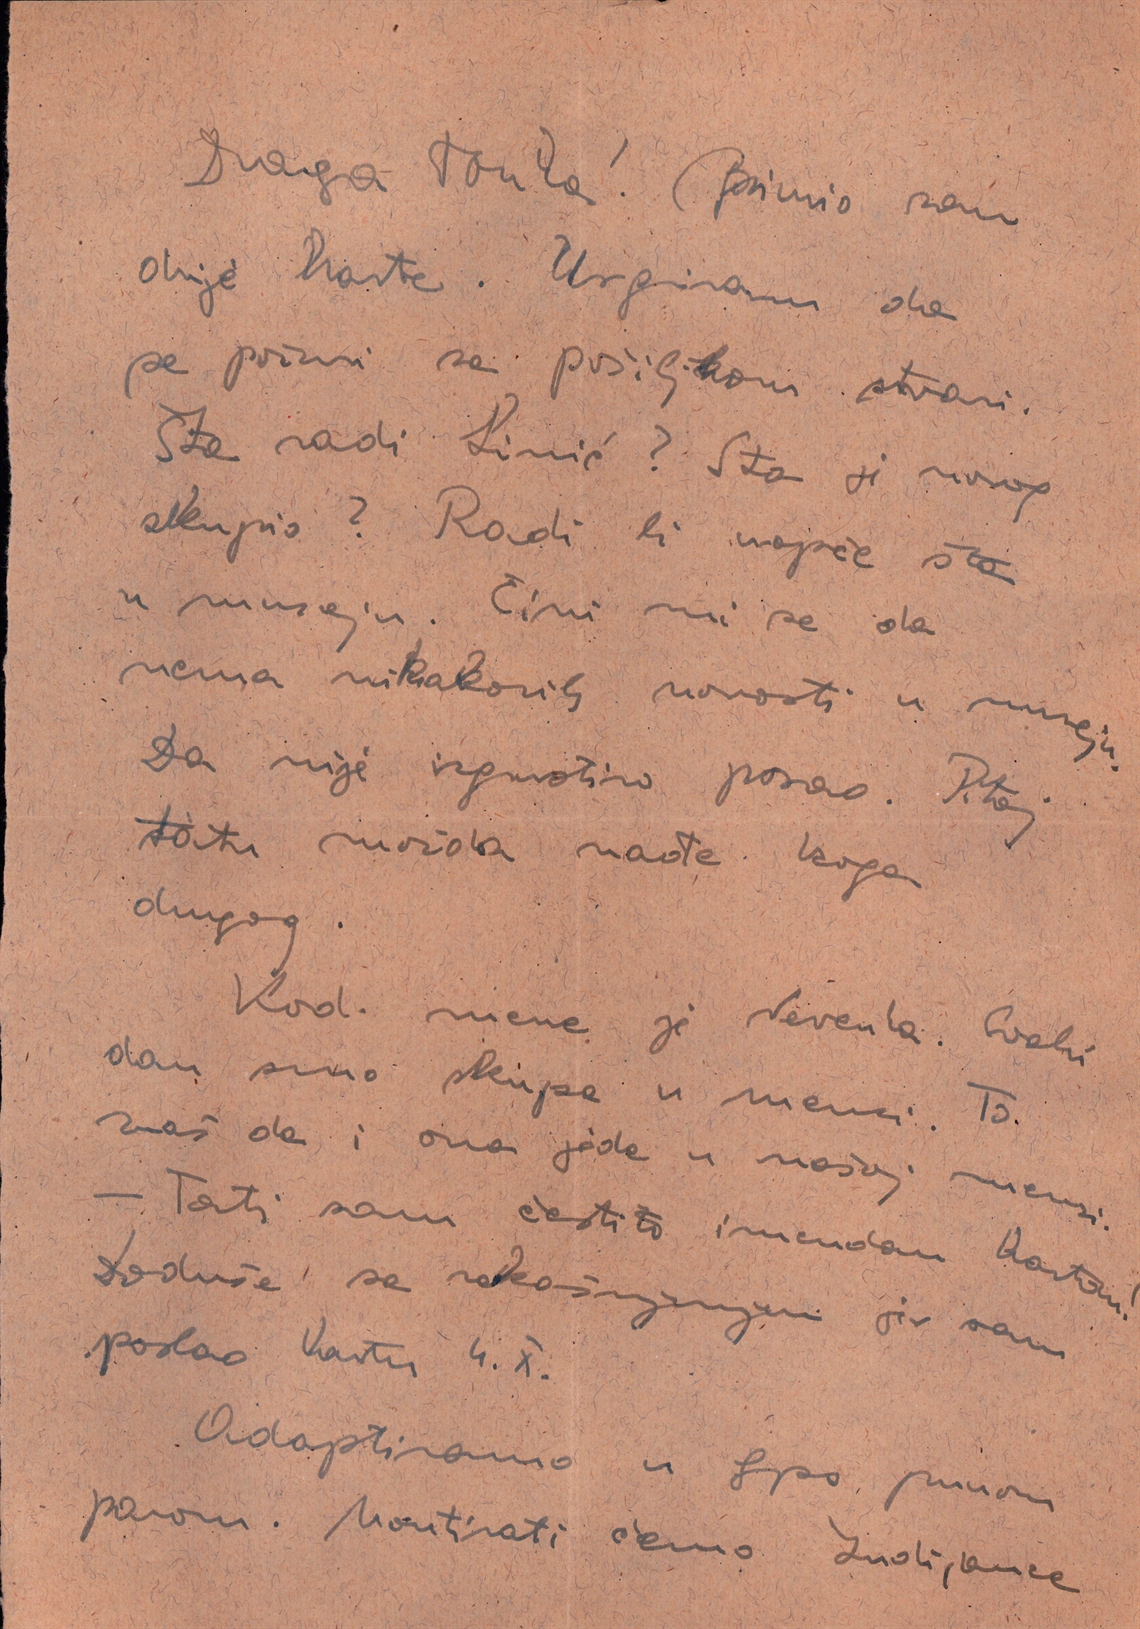 Draga Tonka! Primio sam
dvije karte. Urgiram da
se požuri sa pošiljkom stvari.
Šta radi Linić? Šta je novog
skupio? Radi li uopće šta
u muzeju. Čini mi se da
nema nikakovih novosti u muzeju.
Da nije izgnotiro posao. Pitaj
tatu možda nađe koga
drugog.
Kod mene je Nevenka. Svaki
dan smo skupa u menzi. To
znaš da i ona jede u našoj menzi.
— Tati sam čestito imendan kartom!
Doduše sa zakašnjenjem jer sam
poslao kartu 4. X.
Adaptiramo u punom
parom. Montirati ćemo Indijance